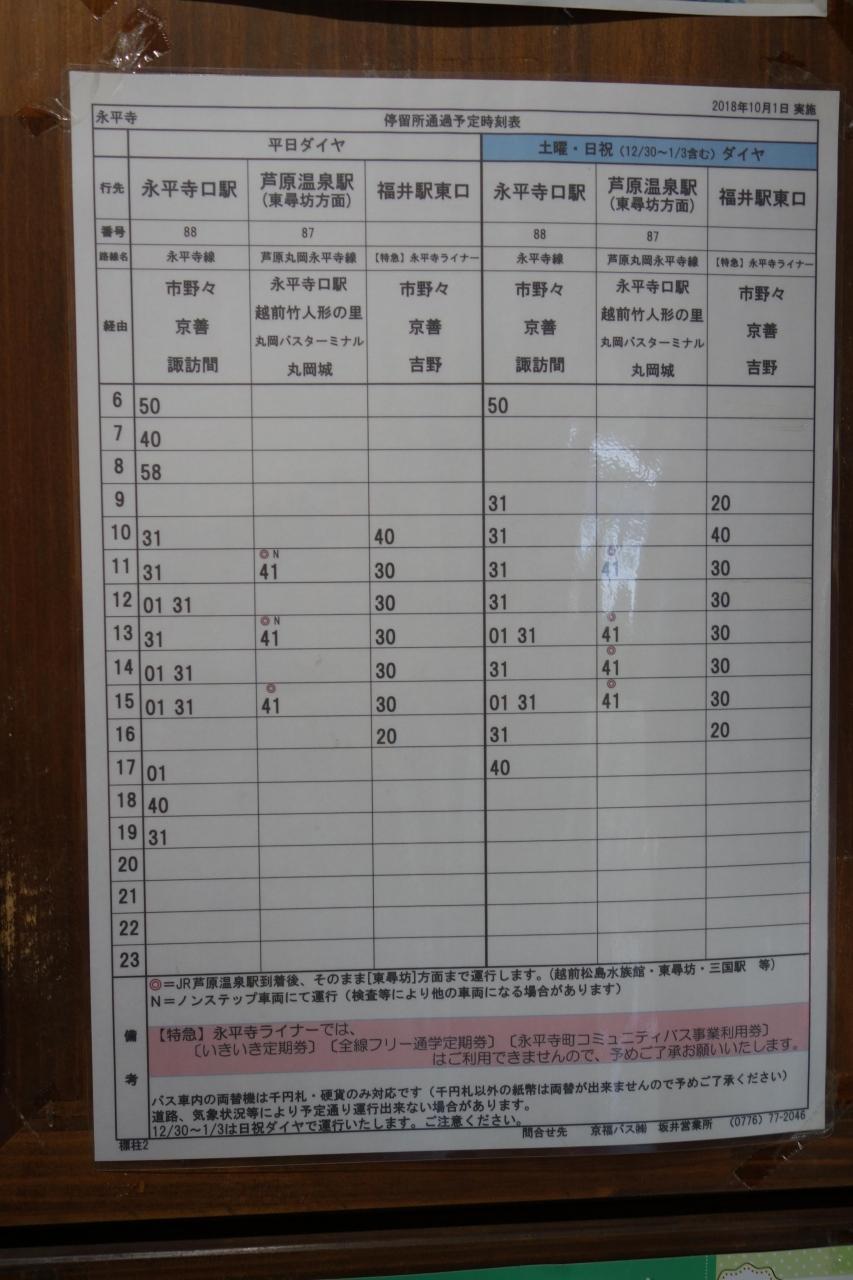 2018年10月1日 実施
永平寺 停留所通過予定時刻表
平日ダイヤ 土曜・日祝（12/30～1/3含む）ダイヤ
行先 永平寺口駅 芦原温泉駅（東尋坊方面） 福井駅東口 永平寺口駅 芦原温泉駅（東尋坊方面） 福井駅東口
番号 88 87 88 87
路線名 永平寺線 芦原丸岡永平寺線 【特急】永平寺ライナー 永平寺線 芦原丸岡永平寺線 【特急】永平寺ライナー
経由
市野々 永平寺口駅 市野々 市野々 永平寺口駅 市野々
京善 越前竹人形の里 京善 京善 越前竹人形の里 京善
丸岡バスターミナル 丸岡バスターミナル
諏訪間 丸岡城 吉野 諏訪間 丸岡城 吉野
6 50 50
7 40
8 58
9 31 20
10 31 40 31 40
11 31 ◎N 41 30 31 ◎ 41 30
12 01 31 30 31 30
13 31 ◎N 41 30 01 31 ◎ 41 30
14 01 31 30 31 ◎ 41 30
15 01 31 ◎ 41 30 01 31 ◎ 41 30
16 20 31 20
17 01 40
18 40
19 31
20
21
22
23
備考
◎＝JR芦原温泉駅到着後、そのまま[東尋坊]方面まで運行します。（越前松島水族館・東尋坊・三国駅 等）
N＝ノンステップ車両にて運行（検査等により他の車両になる場合があります）
【特急】永平寺ライナーでは、
〔いきいき定期券〕〔全線フリー通学定期券〕〔永平寺町コミュニティバス事業利用券〕
はご利用できませんので、予めご了承お願いいたします。
バス車内の両替機は千円札・硬貨のみ対応です（千円札以外の紙幣は両替が出来ませんので予めご了承ください）
道路、気象状況等により予定通り運行出来ない場合があります。
12/30～1/3は日祝ダイヤで運行いたします。ご注意ください。
問合せ先 京福バス㈱ 坂井営業所 （0776）77-2046
標柱2